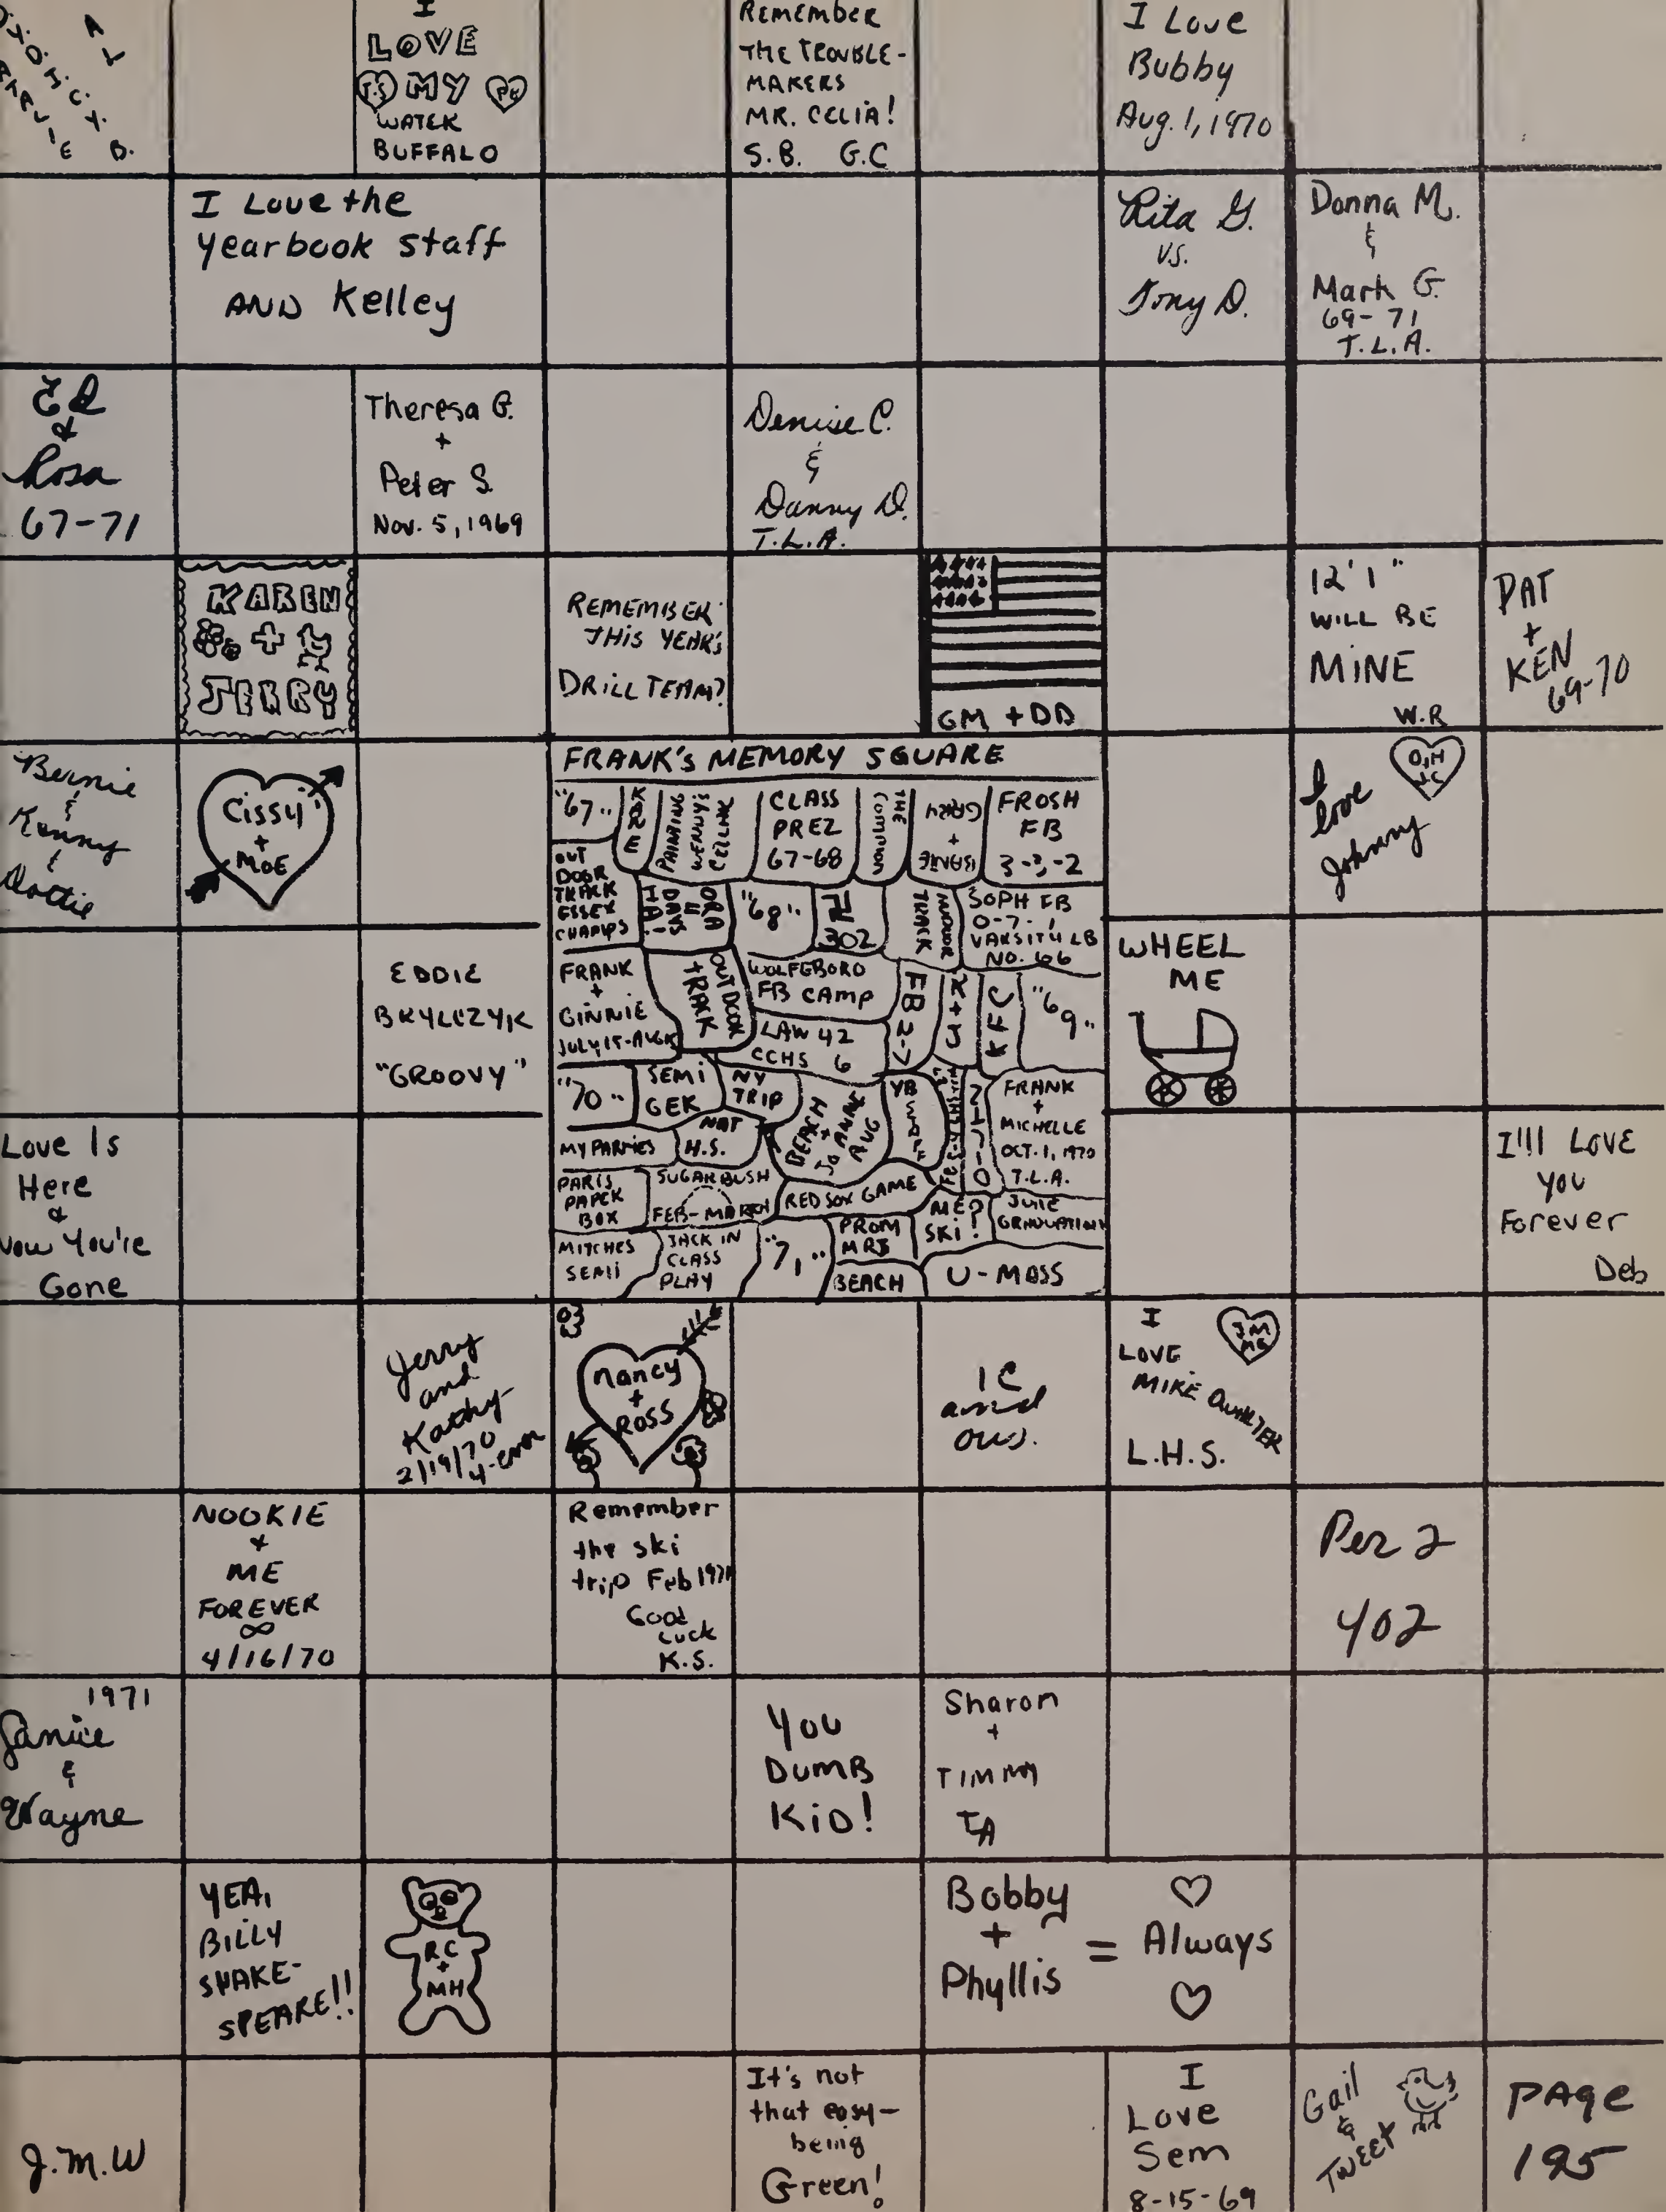 I
LOVE
T.S MY PK
WATER
BUFFALO
REMEMBER
THE TROUBLE-
MAKERS
MR. CELIA!
S.B. G.C
I Love
Bubby
Aug. 1, 1970
I Love the
Yearbook staff
AND Kelley
Rita G.
V.S.
Tony D.
Donna M.
&
Mark G.
69-71
T.L.A.
Ed
&
Rosa
67-71
Theresa G.
+
Peter S.
Nov. 5, 1969
Denise C.
&
Danny D.
T.L.A.
KAREN
+
JERRY
REMEMBER
THIS YEAR'S
DRILL TEAM?
GM + DD
12'1"
WILL BE
MINE
W.R
PAT
+
KEN
69-70
Bernie
&
Kenny
&
Dottie
Cissy
+
MOE
FRANK'S MEMORY SQUARE
"67"
KAREN
PAINTING
WENNY'S
CLASS
PREZ
67-68
THE
COMMONS
GARY
+
FROSH
FB
3-3-2
OUT
DOOR
TRACK
ESSEX
CHAMPS
"68"
302
INDOOR
TRACK
SOPH FB
0-7-1
VARSITY LB
NO. 66
FRANK
+
GINNIE
JULY 15-AUG
OUTDOOR
TRACK
WOLFEBORO
FB CAMP
LAW 42
CCHS 6
FB 2-7
KFC
"69"
"70"
SEMI
GEK
NY
TRIP
BEACH
+
JOANNE
AUG
YB
FRANK
+
MICHELLE
OCT. 1, 1970
T.L.A.
MY PARTIES
NAT
H.S.
PARIS
PAPER
BOX
SUGARBUSH
FEB-MARCH
RED SOX GAME
ME?
SKI!
JUNE
GRADUATION
MITCHES
SEMI
JACK IN
CLASS
PLAY
"71"
PROM
MRJ
BEACH
U-MASS
I
Love
Johnny
EDDIE
BRYLCZYK
"GROOVY"
WHEEL
ME
Love Is
Here
&
Now You're
Gone
I'll LOVE
YOU
Forever
Deb
Jerry
and
Kathy
2/19/70
4-ever
Nancy
+
ROSS
I
LOVE
MIKE
L.H.S.
NOOKIE
&
ME
FOREVER
∞
4/16/70
Remember
the ski
trip Feb 1971
Good
Luck
K.S.
Per 2
402
1971
Janice
&
Wayne
YOU
DUMB
KID!
Sharon
+
TIMMY
YEA,
BILLY
SHAKE-
SPEARE!!
RC
+
MH
Bobby
+
Phyllis
= ♡
Always
♡
J.M.W
It's not
that easy-
being
Green!
I
Love
Sem
8-15-69
Gail
&
TWEET
PAGE
195